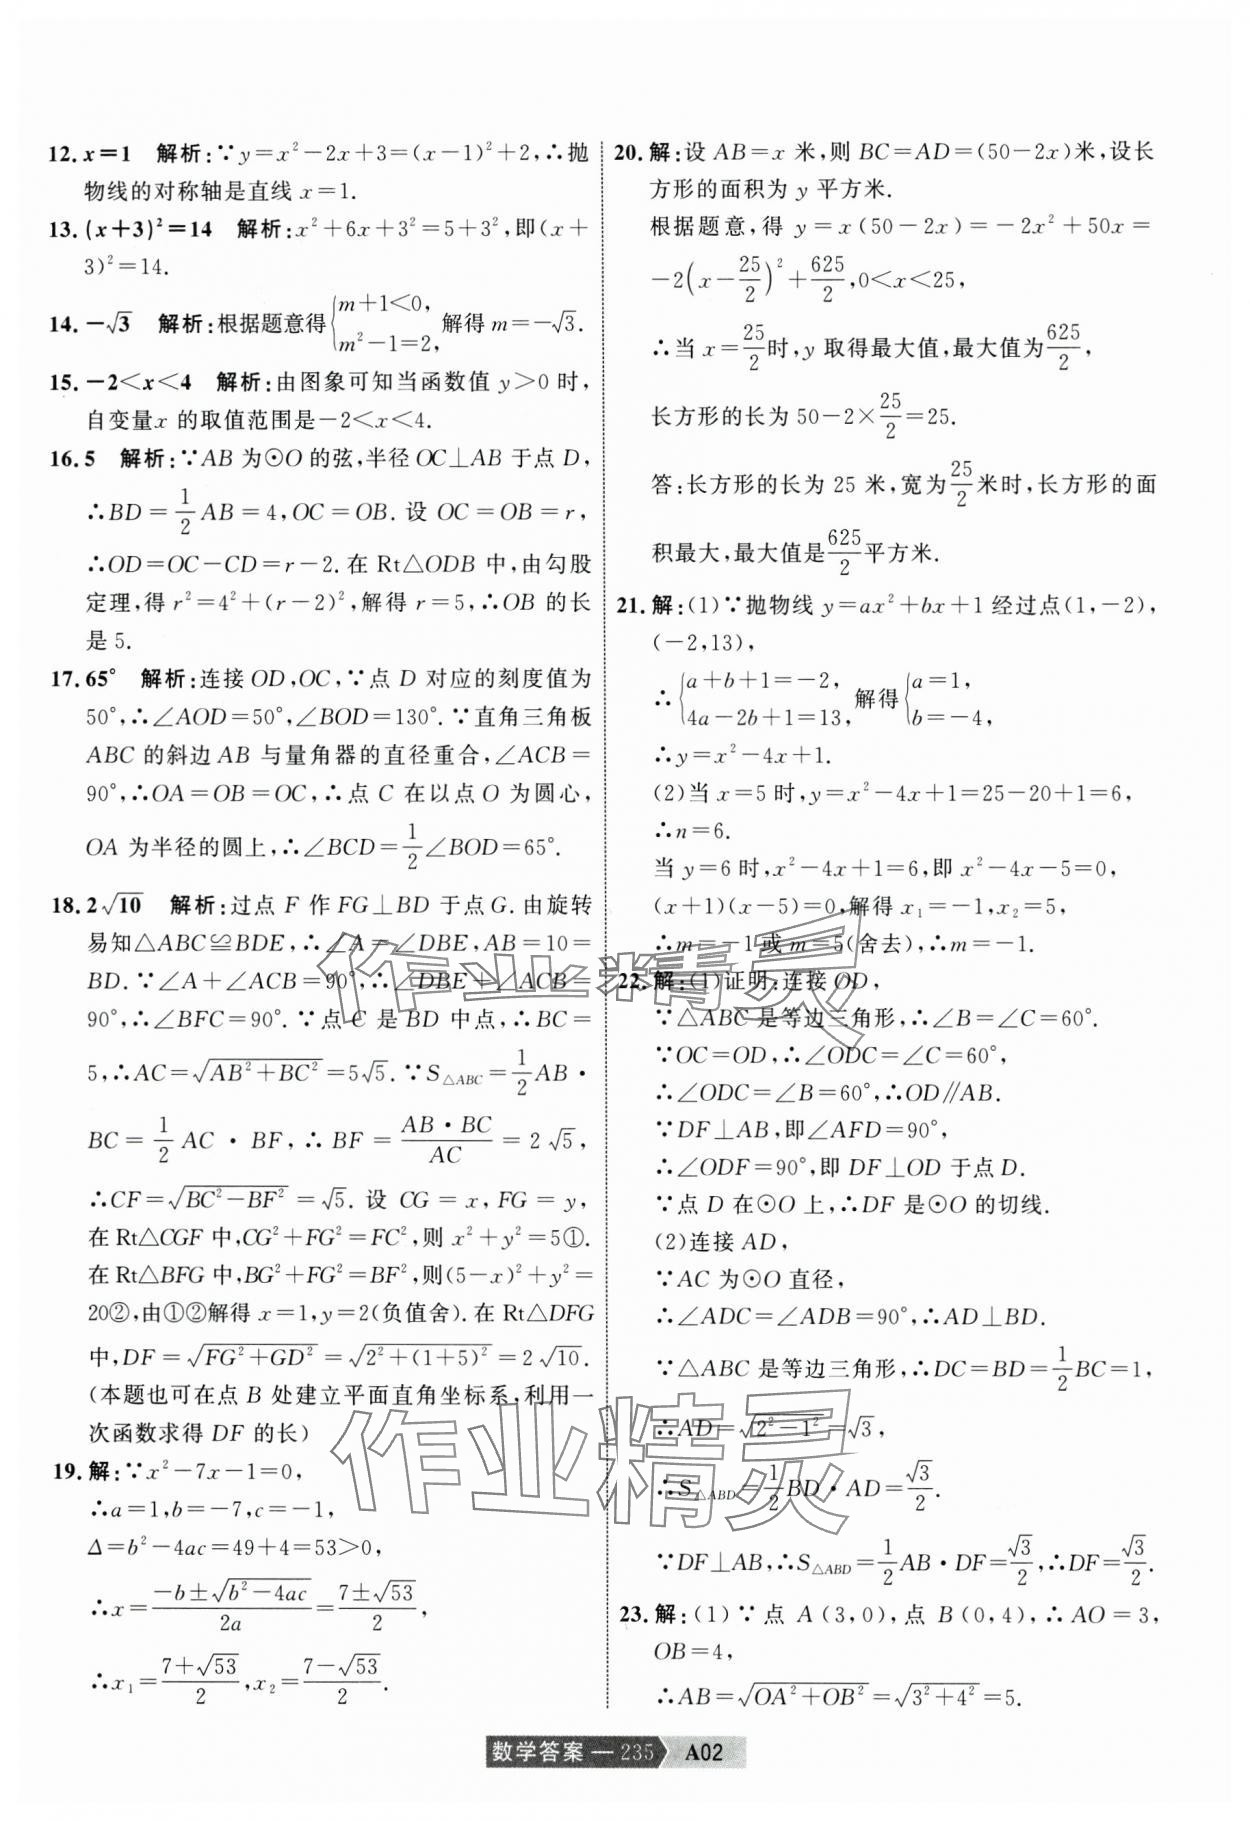 12. x=1　解析:∵y=x²-2x+3=(x-1)²+2,∴抛
物线的对称轴是直线 x=1.
13. (x+3)²=14　解析:x²+6x+3²=5+3²,即(x+
3)²=14.
14. -√3　解析:根据题意得{m+1<0, m²-1=2, 解得 m=-√3.
15. -2<x<4　解析:由图象可知当函数值 y>0 时,
自变量x 的取值范围是-2<x<4.
16. 5　解析:∵AB 为⊙O 的弦,半径 OC⊥AB 于点 D,
∴BD=1/2 AB=4,OC=OB. 设 OC=OB=r,
∴OD=OC-CD=r-2. 在 Rt△ODB 中,由勾股
定理,得 r²=4²+(r-2)²,解得 r=5,∴OB 的长
是 5.
17. 65°　解析:连接 OD,OC,∵点 D 对应的刻度值为
50°,∴∠AOD=50°,∠BOD=130°. ∵直角三角板
ABC 的斜边 AB 与量角器的直径重合,∠ACB=
90°,∴OA=OB=OC,∴点 C 在以点 O 为圆心,
OA 为半径的圆上,∴∠BCD=1/2∠BOD=65°.
18. 2√10　解析:过点 F 作 FG⊥BD 于点 G. 由旋转
易知△ABC≌BDE,∴∠A=∠DBE,AB=10=
BD. ∵∠A+∠ABC=90°,∴∠DBE+∠ABC=
90°,∴∠BFC=90°. ∵点 C 是 BD 中点,∴BC=
5,∴AC=√(AB²+BC²)=5√5. ∵S△ABC=1/2 AB·
BC=1/2 AC·BF,∴BF=AB·BC/AC=2√5,
∴CF=√(BC²-BF²)=√5. 设 CG=x,FG=y,
在 Rt△CGF 中,CG²+FG²=FC²,则 x²+y²=5①.
在 Rt△BFG 中,BG²+FG²=BF²,则(5-x)²+y²=
20②,由①②解得 x=1,y=2(负值舍). 在 Rt△DFG
中,DF=√(FG²+GD²)=√(2²+(1+5)²)=2√10.
(本题也可在点 B 处建立平面直角坐标系,利用一
次函数求得 DF 的长)
19. 解:∵x²-7x-1=0,
∴a=1,b=-7,c=-1,
Δ=b²-4ac=49+4=53>0,
∴x=(-b±√(b²-4ac))/2a=(7±√53)/2,
∴x₁=(7+√53)/2,x₂=(7-√53)/2.
20. 解:设 AB=x 米,则 BC=AD=(50-2x)米,设长
方形的面积为 y 平方米.
根据题意,得 y=x(50-2x)=-2x²+50x=
-2(x-25/2)²+625/2,0<x<25,
∴当 x=25/2时,y 取得最大值,最大值为625/2,
长方形的长为 50-2×25/2=25.
答:长方形的长为 25 米,宽为25/2米时,长方形的面
积最大,最大值是625/2平方米.
21. 解:(1)∵抛物线 y=ax²+bx+1 经过点(1,-2),
(-2,13),
∴{a+b+1=-2, 4a-2b+1=13, 解得{a=1, b=-4,
∴y=x²-4x+1.
(2)当 x=5 时,y=x²-4x+1=25-20+1=6,
∴n=6.
当 y=6 时,x²-4x+1=6,即 x²-4x-5=0,
(x+1)(x-5)=0,解得 x₁=-1,x₂=5,
∴m=-1 或 m=5(舍去),∴m=-1.
22. 解:(1)证明:连接 OD,
∵△ABC 是等边三角形,∴∠B=∠C=60°.
∵OC=OD,∴∠ODC=∠C=60°,
∴∠ODC=∠B=60°,∴OD∥AB.
∵DF⊥AB,即∠AFD=90°,
∴∠ODF=90°,即 DF⊥OD 于点 D.
∵点 D 在⊙O 上,∴DF 是⊙O 的切线.
(2)连接 AD,
∵AC 为⊙O 直径,
∴∠ADC=∠ADB=90°,∴AD⊥BD.
∵△ABC 是等边三角形,∴DC=BD=1/2 BC=1,
∴AD=√(2²-1²)=√3,
∴S△ABD=1/2 BD·AD=√3/2.
∵DF⊥AB,∴S△ABD=1/2 AB·DF=√3/2,∴DF=√3/2.
23. 解:(1)∵点 A(3,0),点 B(0,4),∴AO=3,
OB=4,
∴AB=√(OA²+OB²)=√(3²+4²)=5.
作业精灵
作业精灵
数学答案 — 235 A02